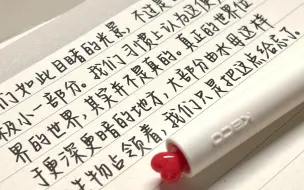 们如此目睹的光景，不过是
极小一部分。我们习惯上认为这便
界的世界，其实并不是真的。真正的世界位
于更深更暗的地方，大部分由水母这样
生物占领着，我们只是把这点给忘了。
KACO